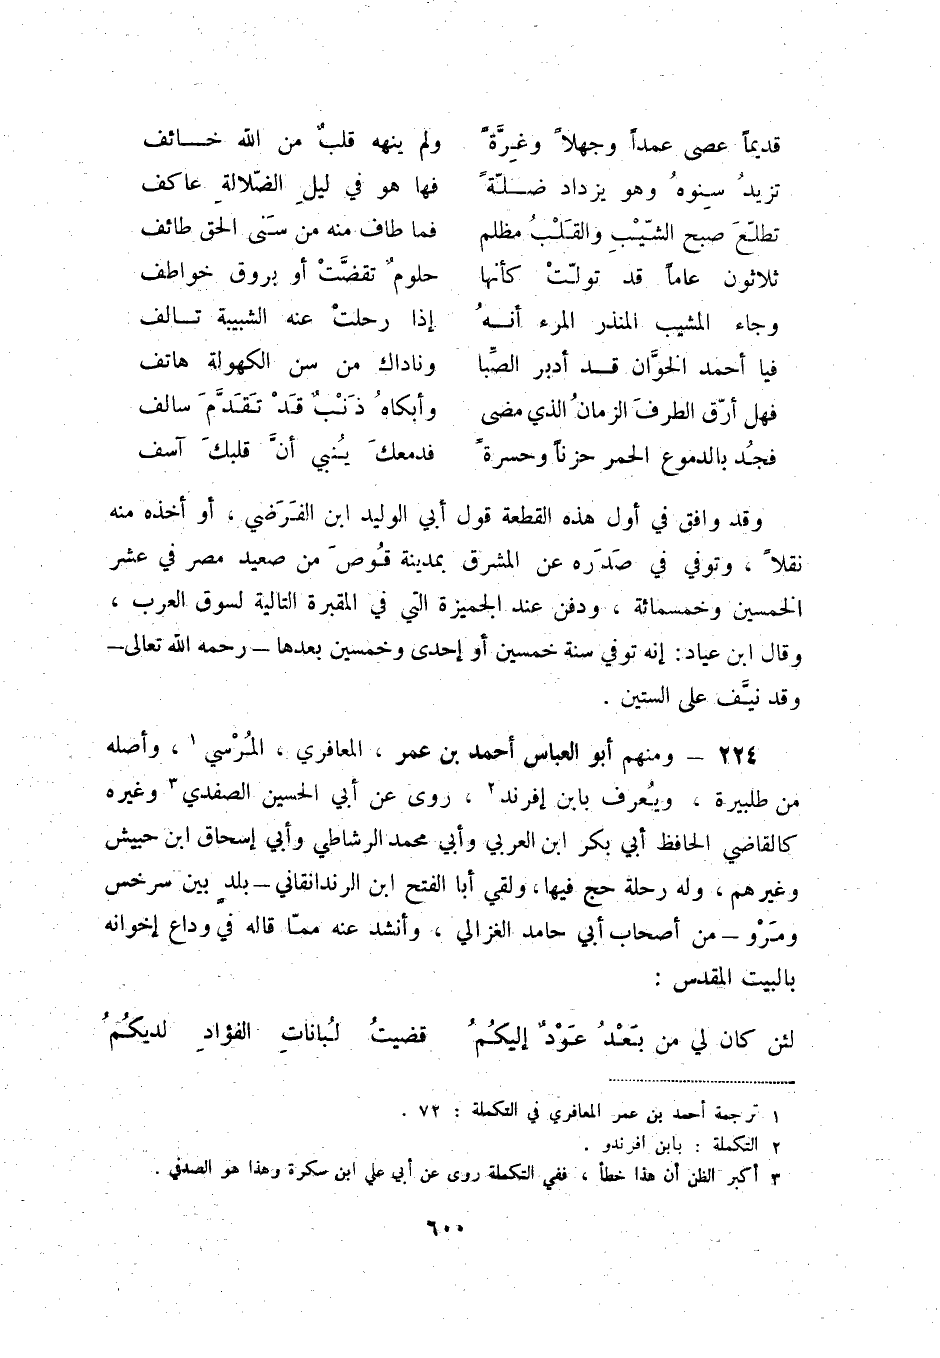 قديماً عصى عمداً وجهلاً وغِرَّةً ولم ينهه قلبٌ من الله خـــائف
تزيدُ سِنوهُ وهو يزداد ضــلّةً فها هو في ليلِ الضّلالةِ عاكف
تطلّعَ صبح الشّيْبِ والقَلْبُ مظلم فما طاف منه من سَنَى الحق طائف
ثلاثون عاماً قد تولّتْ كأنها حلومٌ تقضَّتْ أو بروق خواطف
وجاء المشيب المنذر المرء أنــهُ إذا رحلتْ عنه الشبيبة تــالف
فيا أحمد الخوَّان قــد أدبر الصِّبا وناداك من سن الكهولة هاتف
فهل أرّق الطرفَ الزمانُ الذي مضى وأبكاهُ ذَنْبٌ قَدْ تَقَدَّمَ سالف
فجُد بالدموع الحمر حزناً وحسرةً فدمعكَ يُنبي أنَّ قلبكَ آسف
وقد وافق في أول هذه القطعة قول أبي الوليد ابن الفَرَضي ، أو أخذه منه
نقلاً ، وتوفي في صَدَره عن المشرق بمدينة قُوصَ من صعيد مصر في عشر
الخمسين وخمسمائة ، ودفن عند الجميزة التي في المقبرة التالية لسوق العرب ،
وقال ابن عياد: إنه توفي سنة خمسين أو إحدى وخمسين بعدها – رحمه الله تعالى –
وقد نيَّف على الستين .
٢٢٤ – ومنهم أبو العباس أحمد بن عمر ، المعافري ، المُرْسي ١ ، وأصله
من طلبيرة ، ويُعرف بابن إفرند ٢ ، روى عن أبي الحسين الصفدي ٣ وغيره
كالقاضي الحافظ أبي بكر ابن العربي وأبي محمد الرشاطي وأبي إسحاق ابن حبيش
وغيرهم ، وله رحلة حج فيها، ولقي أبا الفتح ابن الرندانقاني – بلدٍ بين سرخس
ومَرْو – من أصحاب أبي حامد الغزالي ، وأنشد عنه ممّا قاله في وداع إخوانه
بالبيت المقدس :
لئن كان لي من بَعْدُ عَوْدٌ إليكُمُ قضيتُ لُباناتِ الفؤادِ لديكُمُ
١ ترجمة أحمد بن عمر المعافري في التكملة : ٧٢ .
٢ التكملة : بابن افرندو .
٣ أكبر الظن أن هذا خطأ ، ففي التكملة روى عن أبي علي ابن سكرة وهذا هو الصدفي .
٦٠٠